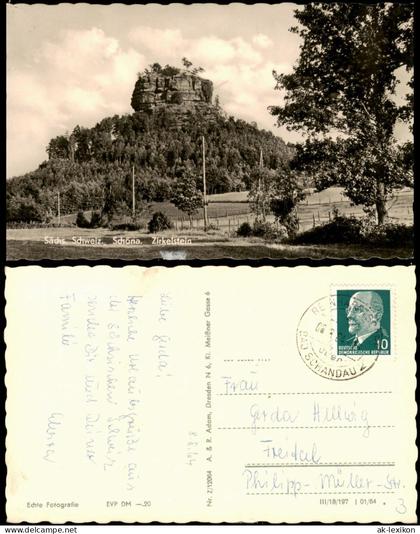 Sächs. Schweiz, Schöna, Zirkelstein
Liebe Gerda!
Herzliche Urlaubsgrüße aus
der Sächsischen Schweiz
senden Dir und Deiner
Familie
8.8.64
Echte Fotografie
EVP DM —.20
Nr. Z/12064 A. & R. Adam, Dresden N 6, Kl. Meißner Gasse 6
BAD SCHANDAU 2
DEUTSCHE
DEMOKRATISCHE REPUBLIK
10
Frau
Gerda Hellwig
Freital
Philipp-Müller-Str.
3
III/18/197 | 01/64
© ak-lexikon.com